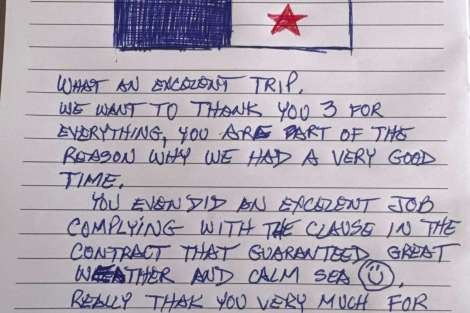 WHAT AN EXCELENT TRIP.
WE WANT TO THANK YOU 3 FOR
EVERYTHING, YOU ARE PART OF THE
REASON WHY WE HAD A VERY GOOD
TIME.
YOU EVEN DID AN EXCELENT JOB
COMPLYING WITH THE CLAUSE IN THE
CONTRACT THAT GUARANTEED GREAT
WEATHER AND CALM SEA
REALLY THAK YOU VERY MUCH FOR